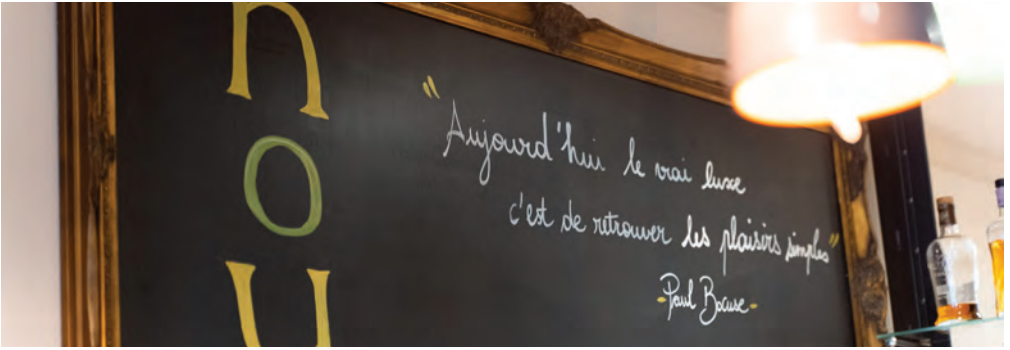 n
o
u
"Aujourd'hui le vrai luxe
c'est de retrouver les plaisirs simples"
-Paul Bocuse-